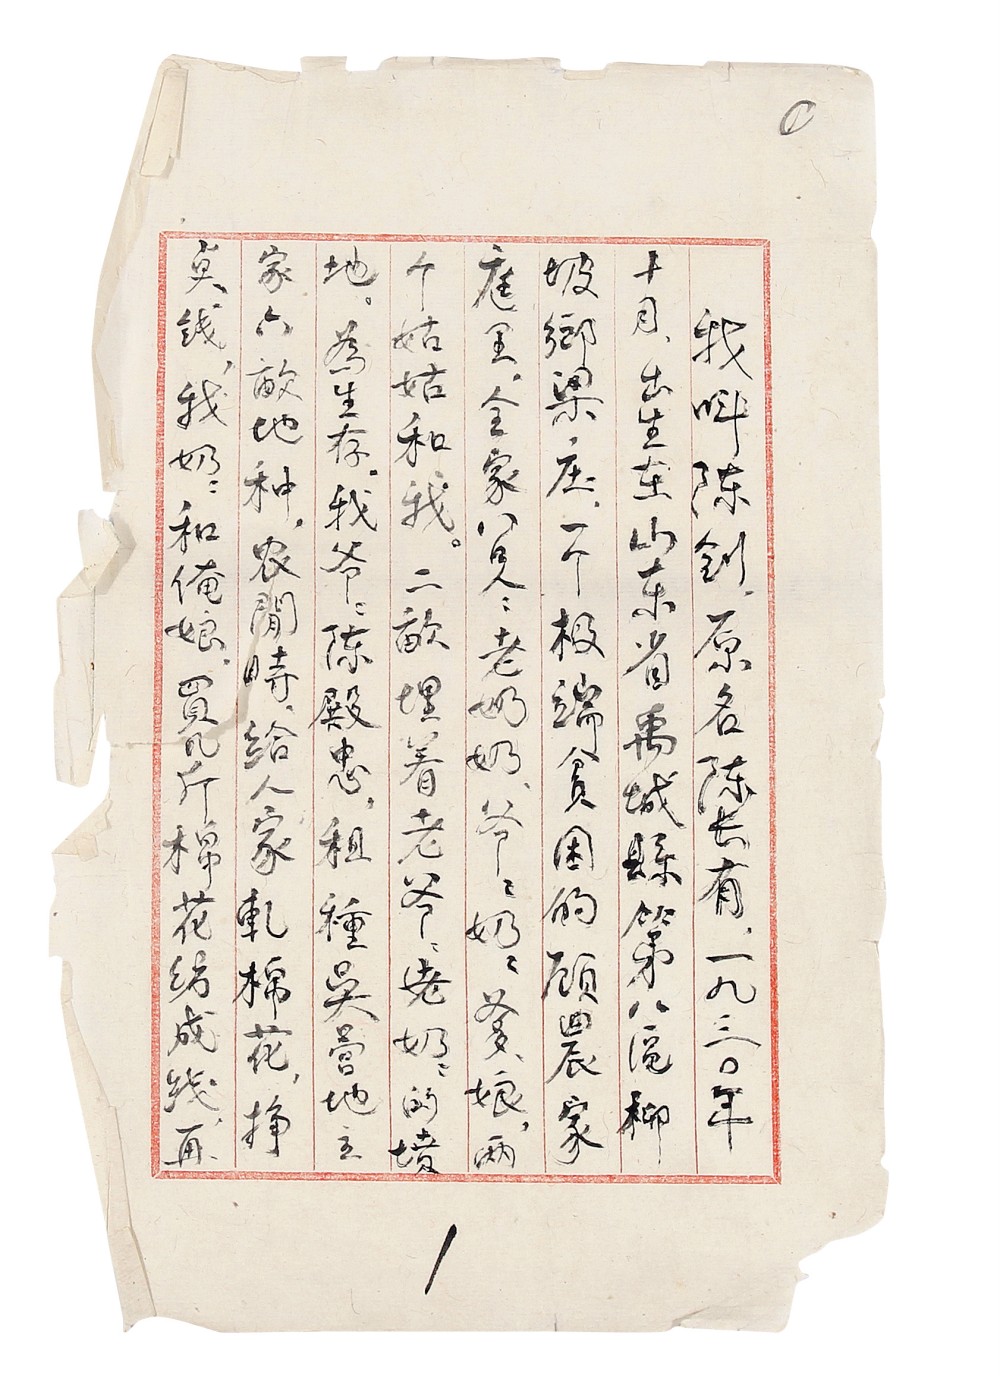 我叫陈剑，原名陈长有，一九三〇年
十月，出生在山东省禹城縣第八區柳
坡鄉梁庄，一个极端貧困的顾農家
庭里。全家八口人：老奶奶、爷〻奶〻、爹、娘，两
个姑姑和我。二畝埋着老爷〻老奶〻的墳
地。為生存，我爷〻陈殿忠，租種吳營地主
家六畝地种，农閒時，给人家軋棉花，挣
点錢，我奶〻和俺娘，買几斤棉花纺成线，再
1